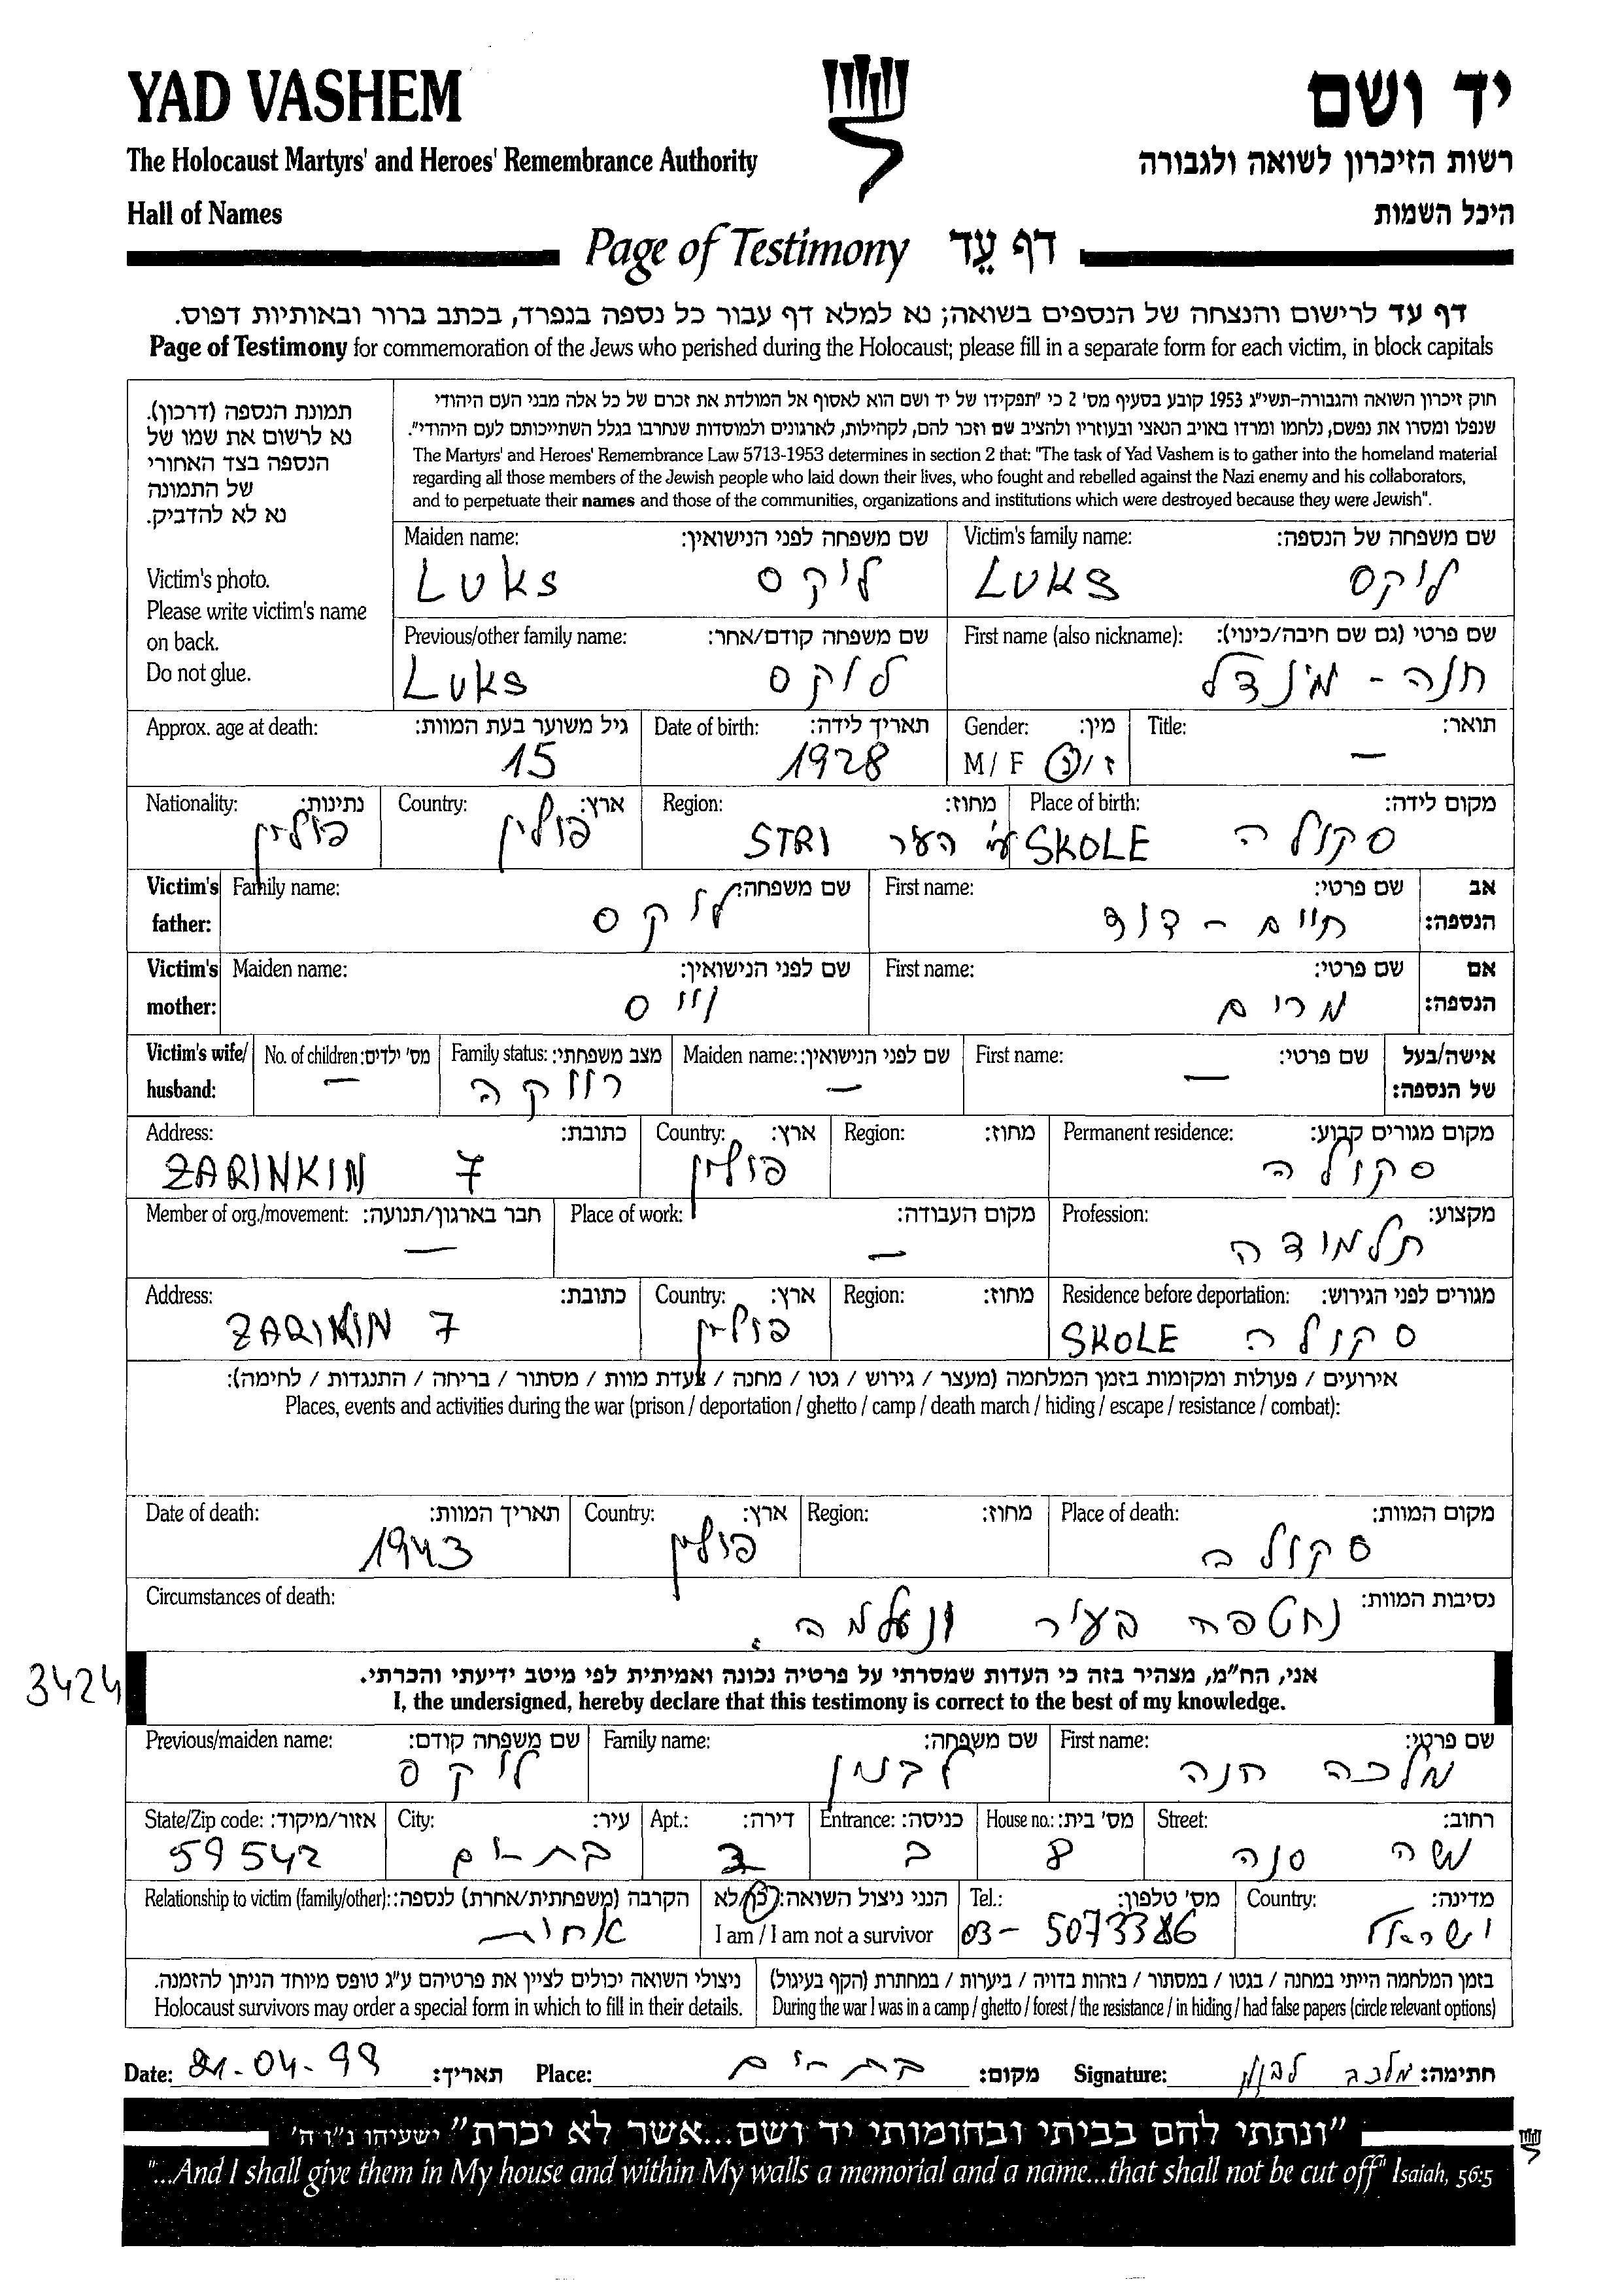 YAD VASHEM
יד ושם
The Holocaust Martyrs' and Heroes' Remembrance Authority
רשות הזיכרון לשואה ולגבורה
Hall of Names
היכל השמות
Page of Testimony דף עֵד
דף עד לרישום והנצחה של הנספים בשואה; נא למלא דף עבור כל נספה בנפרד, בכתב ברור ובאותיות דפוס.
Page of Testimony for commemoration of the Jews who perished during the Holocaust; please fill in a separate form for each victim, in block capitals
תמונת הנספה (דרכון).
נא לרשום את שמו של
הנספה בצד האחורי
של התמונה
נא לא להדביק.
Victim's photo.
Please write victim's name
on back.
Do not glue.
חוק זיכרון השואה והגבורה-תשי"ג 1953 קובע בסעיף מס' 2 כי "תפקידו של יד ושם הוא לאסוף אל המולדת את זכרם של כל אלה מבני העם היהודי
שנפלו ומסרו את נפשם, נלחמו ומרדו באויב הנאצי ובעוזריו ולהציב שם וזכר להם, לקהילות, לארגונים ולמוסדות שנחרבו בגלל השתייכותם לעם היהודי".
The Martyrs' and Heroes' Remembrance Law 5713-1953 determines in section 2 that: "The task of Yad Vashem is to gather into the homeland material
regarding all those members of the Jewish people who laid down their lives, who fought and rebelled against the Nazi enemy and his collaborators,
and to perpetuate their names and those of the communities, organizations and institutions which were destroyed because they were Jewish".
Maiden name: שם משפחה לפני הנישואין: Victim's family name: שם משפחה של הנספה:
Luks לוקס Luks לוקס
Previous/other family name: שם משפחה קודם/אחר: First name (also nickname): שם פרטי (גם שם חיבה/כינוי):
Luks לוקס חנה - מינדל
Approx. age at death: גיל משוער בעת המוות: Date of birth: תאריך לידה: Gender: מין: Title: תואר:
15 1928 M / F ז/נ —
Nationality: נתינות: Country: ארץ: Region: מחוז: Place of birth: מקום לידה:
פולין פולין STRI הער SKOLE סקולה
Victim's father: Family name: שם משפחה: First name: שם פרטי: אב הנספה:
לוקס חיים - דוד
Victim's mother: Maiden name: שם לפני הנישואין: First name: שם פרטי: אם הנספה:
וייס מרים
Victim's wife/ husband: No. of children: מס' ילדים: Family status: מצב משפחתי: Maiden name: שם לפני הנישואין: First name: שם פרטי: אישה/בעל של הנספה:
— רווקה — —
Address: כתובת: Country: ארץ: Region: מחוז: Permanent residence: מקום מגורים קבוע:
ZARINKIN 7 פולין סקולה
Member of org./movement: חבר בארגון/תנועה: Place of work: מקום העבודה: Profession: מקצוע:
— — תלמודה
Address: כתובת: Country: ארץ: Region: מחוז: Residence before deportation: מגורים לפני הגירוש:
ZARINKIN 7 פולין SKOLE סקולה
אירועים / פעולות ומקומות בזמן המלחמה (מעצר / גירוש / גטו / מחנה / צעדת מוות / מסתור / בריחה / התנגדות / לחימה):
Places, events and activities during the war (prison / deportation / ghetto / camp / death march / hiding / escape / resistance / combat):
Date of death: תאריך המוות: Country: ארץ: Region: מחוז: Place of death: מקום המוות:
1943 פולין סקולה
Circumstances of death: נסיבות המוות:
נחטפה בעיר ונעלמה.
3424
אני, הח"מ, מצהיר בזה כי העדות שמסרתי על פרטיה נכונה ואמיתית לפי מיטב ידיעתי והכרתי.
I, the undersigned, hereby declare that this testimony is correct to the best of my knowledge.
Previous/maiden name: שם משפחה קודם: Family name: שם משפחה: First name: שם פרטי:
לוקס לבנון מלכה חנה
State/Zip code: אזור/מיקוד: City: עיר: Apt.: דירה: Entrance: כניסה: House no.: מס' בית: Street: רחוב:
59542 בת-ים 2 ב 8 משה סנה
Relationship to victim (family/other): הקרבה (משפחתית/אחרת) לנספה: הנני ניצול השואה: כן/לא Tel.: מס' טלפון: Country: מדינה:
אחות I am / I am not a survivor 03- 5073386 ישראל
ניצולי השואה יכולים לציין את פרטיהם ע"ג טופס מיוחד הניתן להזמנה. בזמן המלחמה הייתי במחנה / בגטו / במסתור / בזהות בדויה / ביערות / במחתרת (הקף בעיגול)
Holocaust survivors may order a special form in which to fill in their details. During the war I was in a camp / ghetto / forest / the resistance / in hiding / had false papers (circle relevant options)
Date: 21-04-99 תאריך: Place: בת-ים מקום: Signature: מלכה לבנון חתימה:
"ונתתי להם בביתי ובחומותי יד ושם...אשר לא יכרת" ישעיהו נ"ו ה'
"...And I shall give them in My house and within My walls a memorial and a name...that shall not be cut off" Isaiah, 56:5